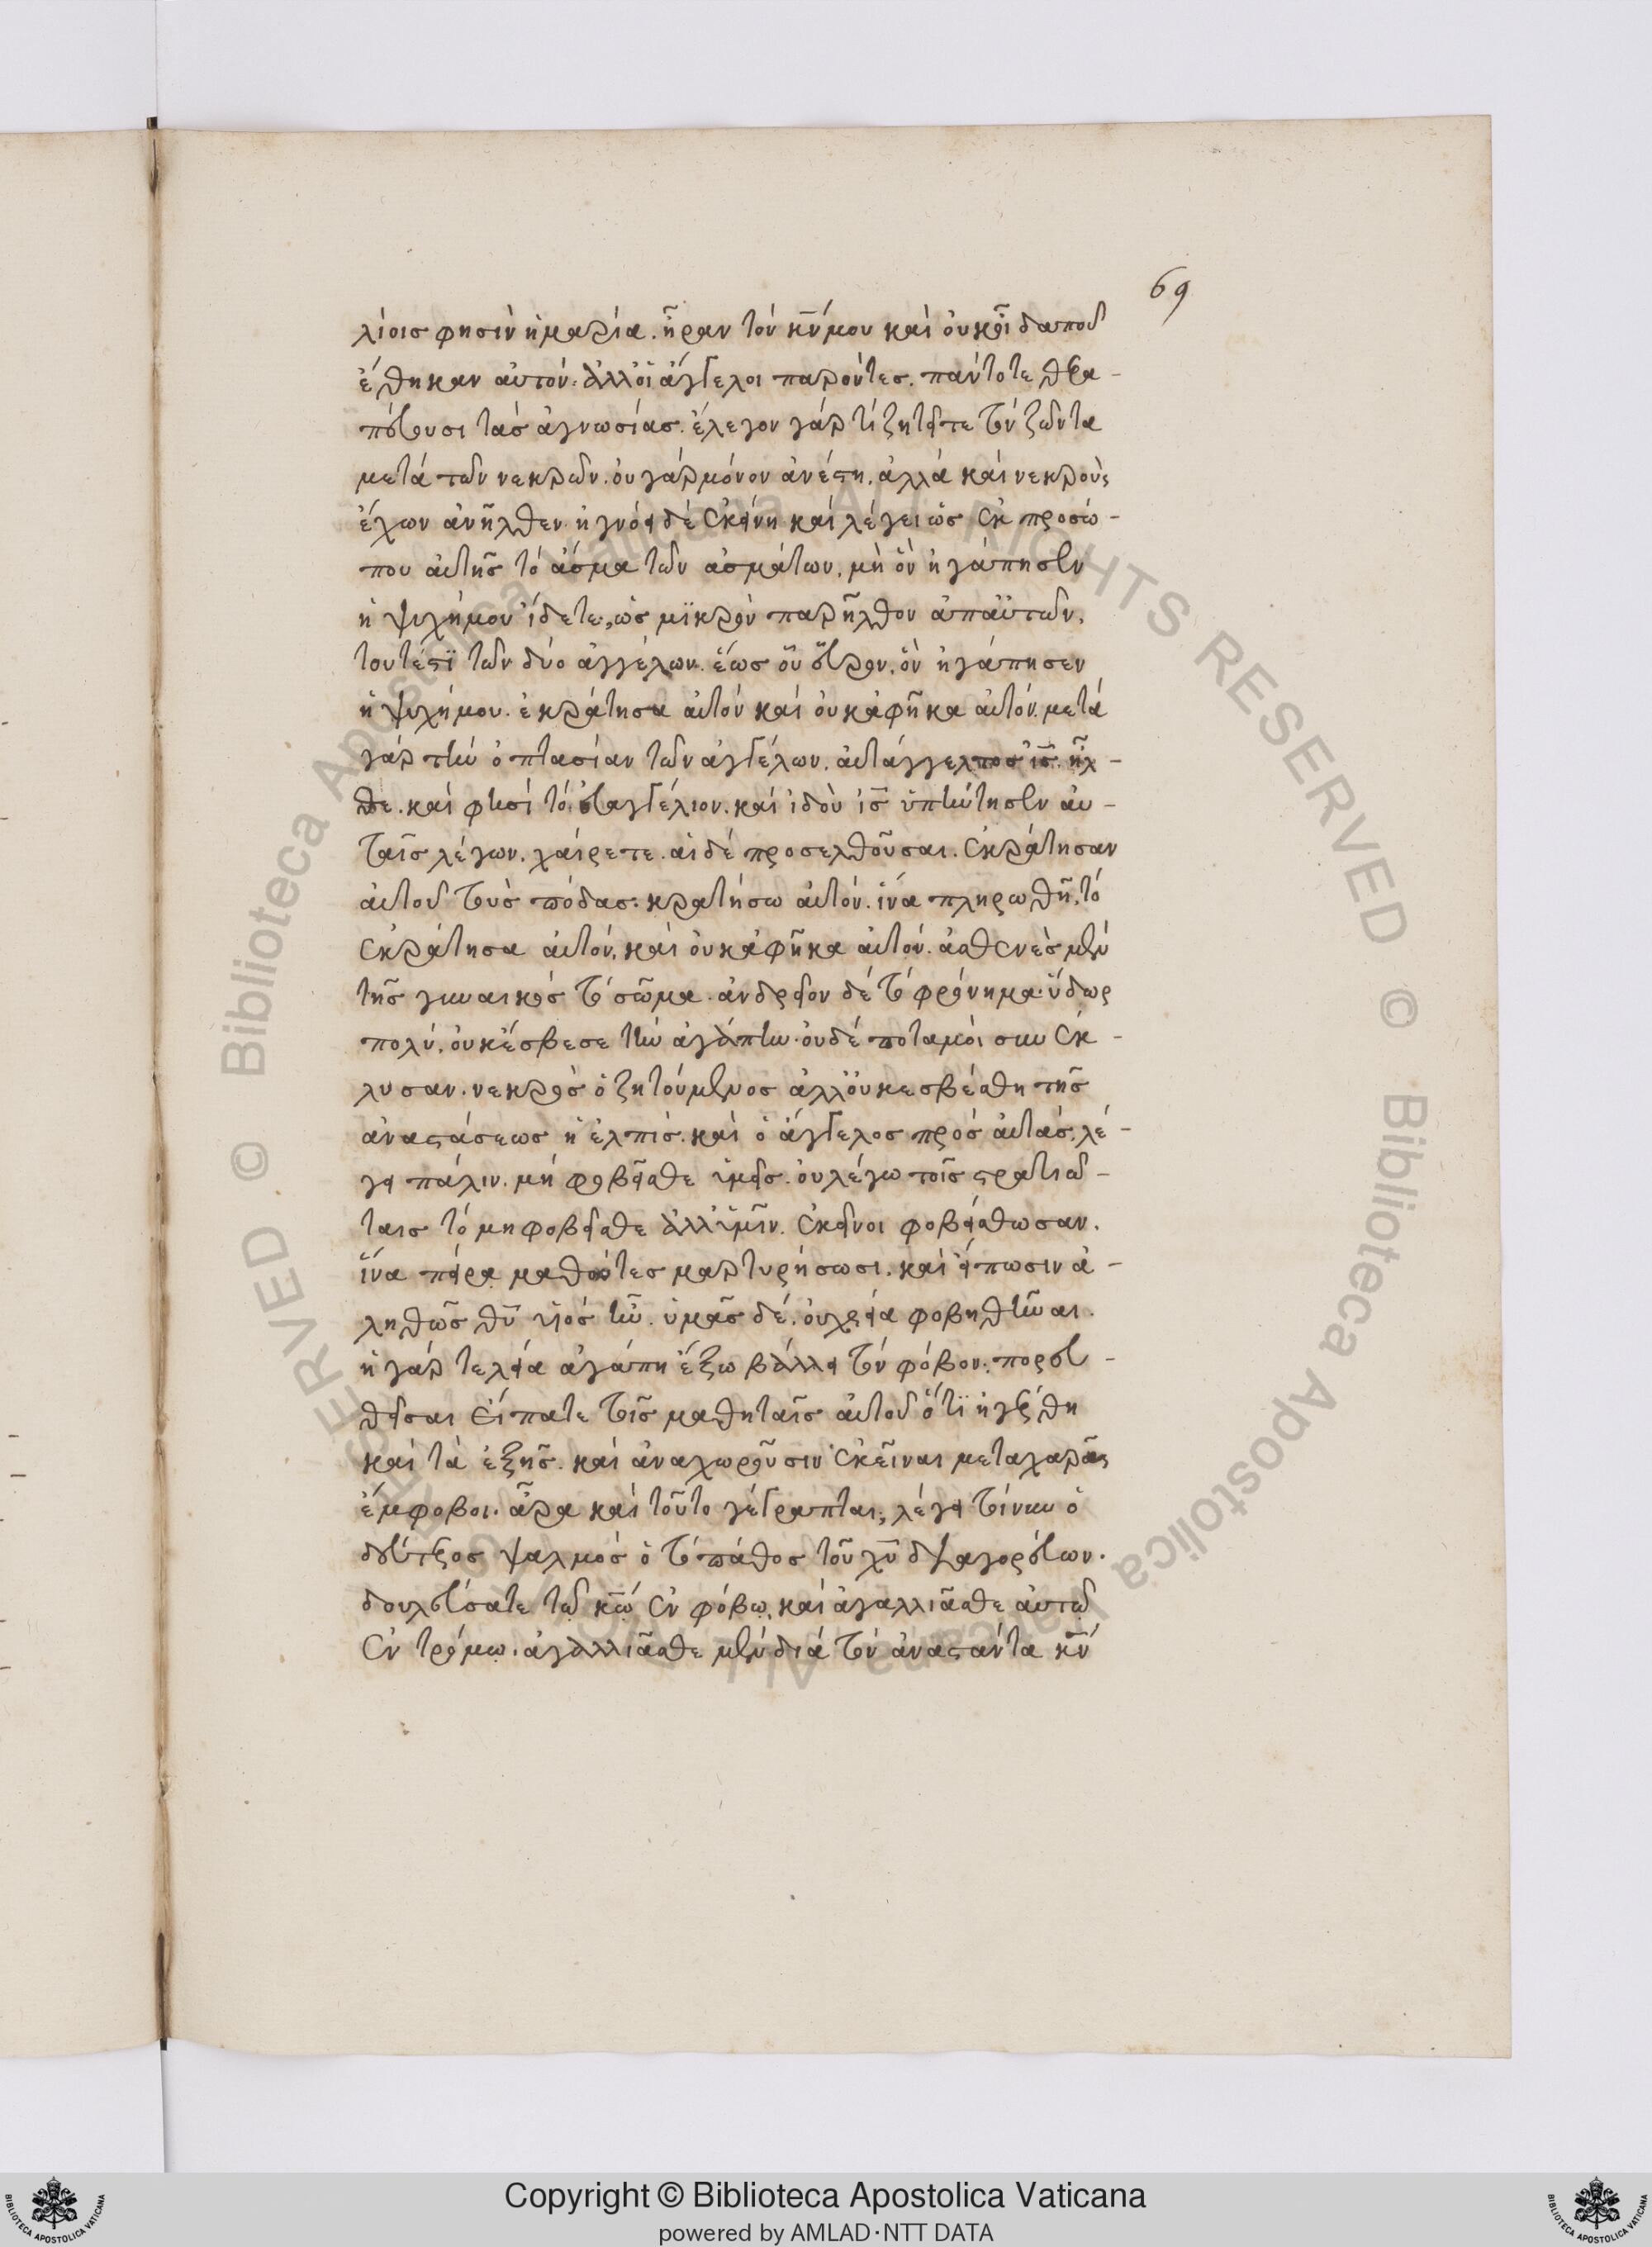 69
λίοισ φησὶν ἡ μαρία. ἦραν τόν κ̅ν̅ μου καὶ οὐκ οἶδα ποῦ
ἔθηκαν αὐτόν. ἀλλ' οἱ ἄγγελοι παρόντες. πάντοτε θερα-
πεύουσι τάσ ἀγνωσίασ. ἔλεγον γάρ τί ζητεῖτε τόν ζῶντα
μετά τῶν νεκρῶν. οὐ γάρ μόνον ἀνέστη, ἀλλά καί νεκρούς
ἔχων ἀνῆλθεν. ἠγνόει δέ ἐκείνη καί λέγει ὡσ ἐκ προσώ-
που αὐτῆσ τό ᾆσμα τῶν ᾀσμάτων, μὴ ὅν ἠγάπησεν
ἡ ψυχή μου ἴδετε, ὡσ μϊκρόν παρῆλθον ἀπ' αὐτῶν,
τουτέστϊ τῶν δύο ἀγγέλων. ἕωσ οὗ εὗρον, ὅν ἠγάπησεν
ἡ ψυχή μου. ἐκράτησα αὐτόν καί οὐκ ἀφῆκα αὐτόν. μετά
γάρ τήν ὀπτασίαν τῶν ἀγγέλων. αὐτάγγελτοσ ἰ̅σ̅ ἦλ-
θε. καί φησί τό εὐαγγέλιον. καί ἰδοὺ ἰ̅σ̅ ὑπήντησεν αὐ-
ταῖσ λέγων. χαίρετε. αἱ δέ προσελθοῦσαι. ἐκράτησαν
αὐτοῦ τούσ πόδασ. κρατήσω αὐτόν. ἵνα πληρωθῆ, τό
ἐκράτησα αὐτόν, καί οὐκ ἀφῆκα αὐτόν. ἀσθενὲσ μέν
τῆσ γυναικόσ τό σῶμα. ἀνδρεῖον δέ τό φρόνημα. ὕδωρ
πολύ, οὐκ ἔσβεσε τήν ἀγάπην. οὐδέ ποταμοί συνέκ-
λυσαν. νεκρόσ ὁ ζητούμενοσ ἀλλ' οὐκ ἐσβέσθη τῆσ
ἀναστάσεωσ ἡ ἐλπίσ. καί ὁ ἄγγελοσ πρόσ αὐτάσ, λέ-
γει πάλιν. μή φοβεῖσθε ὑμεῖσ. οὐ λέγω τοῖσ στρατιώ-
ταισ τό μη φοβεῖσθε ἀλλ' ὑμῖν. ἐκεῖνοι φοβείσθωσαν.
ἵνα πείρα μαθόντεσ μαρτυρήσωσι. καί εἴπωσιν ἀ-
ληθῶσ θ̅υ̅ υἱόσ ἦν. ὑμᾶσ δέ, οὐ χρεία φοβηθῆναι.
ἡ γάρ τελεία ἀγάπη ἔξω βάλλει τόν φόβον. πορευ-
θεῖσαι εἴπατε τοῖσ μαθηταῖσ αὐτοῦ ὅτϊ ἠγέρθη
καί τὰ ἑξῆσ. καί ἀναχωροῦσιν ἐκεῖναι μετα χαρᾶς
ἔμφοβοι. ἆρα καί τοῦτο γέγραπται; λέγει τοίνυν ὁ
δεύτεροσ ψαλμόσ ὁ τό πάθοσ τοῦ χ̅υ̅ διαγορεύων.
δουλεύσατε τῷ κ̅ω̅ ἐν φόβῳ, καί ἀγαλλιᾶσθε αὐτῷ
ἐν τρόμῳ. ἀγαλλιᾶσθε μέν διά τόν ἀναστάντα κ̅ν̅
Copyright © Biblioteca Apostolica Vaticana
powered by AMLAD·NTT DATA